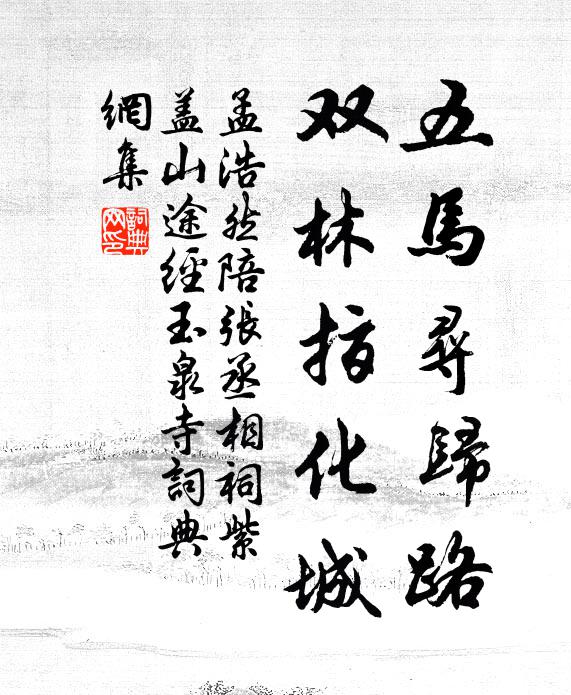 五馬尋歸路
双林指化城
孟浩然陪張丞相祠紫
盖山途經玉泉寺詞典
網集
詞典
网印